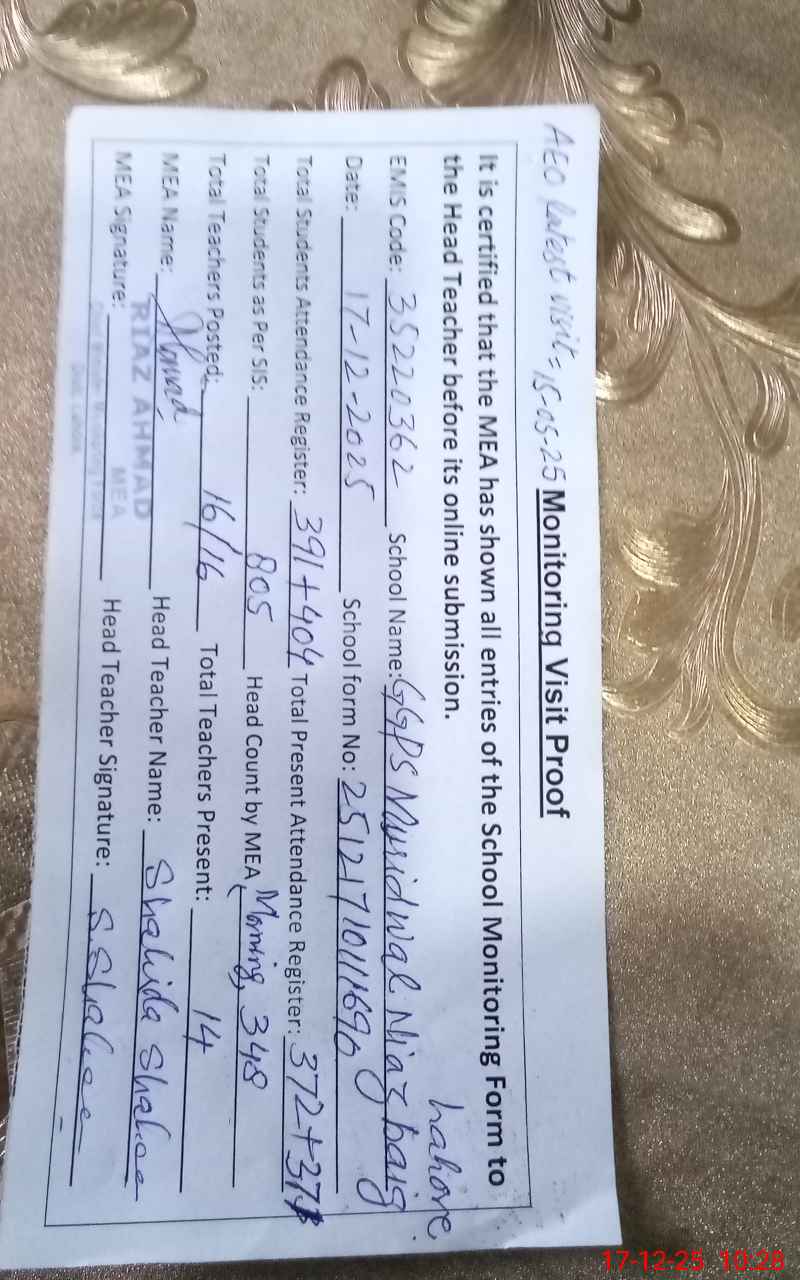 AEO latest visit = 15-05-25 Monitoring Visit Proof
It is certified that the MEA has shown all entries of the School Monitoring Form to
the Head Teacher before its online submission.
Lahore.
EMIS Code: 35220362 School Name: GGPS Muridwal Niaz baig
Date: 17-12-2025 School form No:
Total Students Attendance Register: 391+404 Total Present Attendance Register: 372+371
Total Students as Per SIS: 805 Head Count by MEA Morning, 348
Total Teachers Posted: 16/16 Total Teachers Present: 14
MEA Name: Ahmad Head Teacher Name: Shahida Shaheen
MEA Signature: Head Teacher Signature: S.Shaheen
RIAZ AHMAD
MEA
17-12-25 10:28